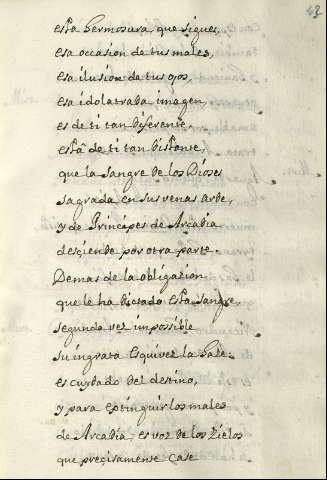 43
esta hermosura, que sigues,
esa occasion de tus males,
esa ilusion de tus ojos,
esa idolatrada imagen,
es de ti tan diferente,
està de ti tan distante,
que la sangre de los Dioses
sagrada en sus venas arde,
y de Principes de Arcadia
desçiende por otra parte.
Demas de la obligazion
que le ha dictado esta sangre,
segunda vez impossible
su ingrata esquivez la haze:
es cuydado del destino,
y para extinguir los males
de Arcadia, es voz de los Zielos
que preçisamente case